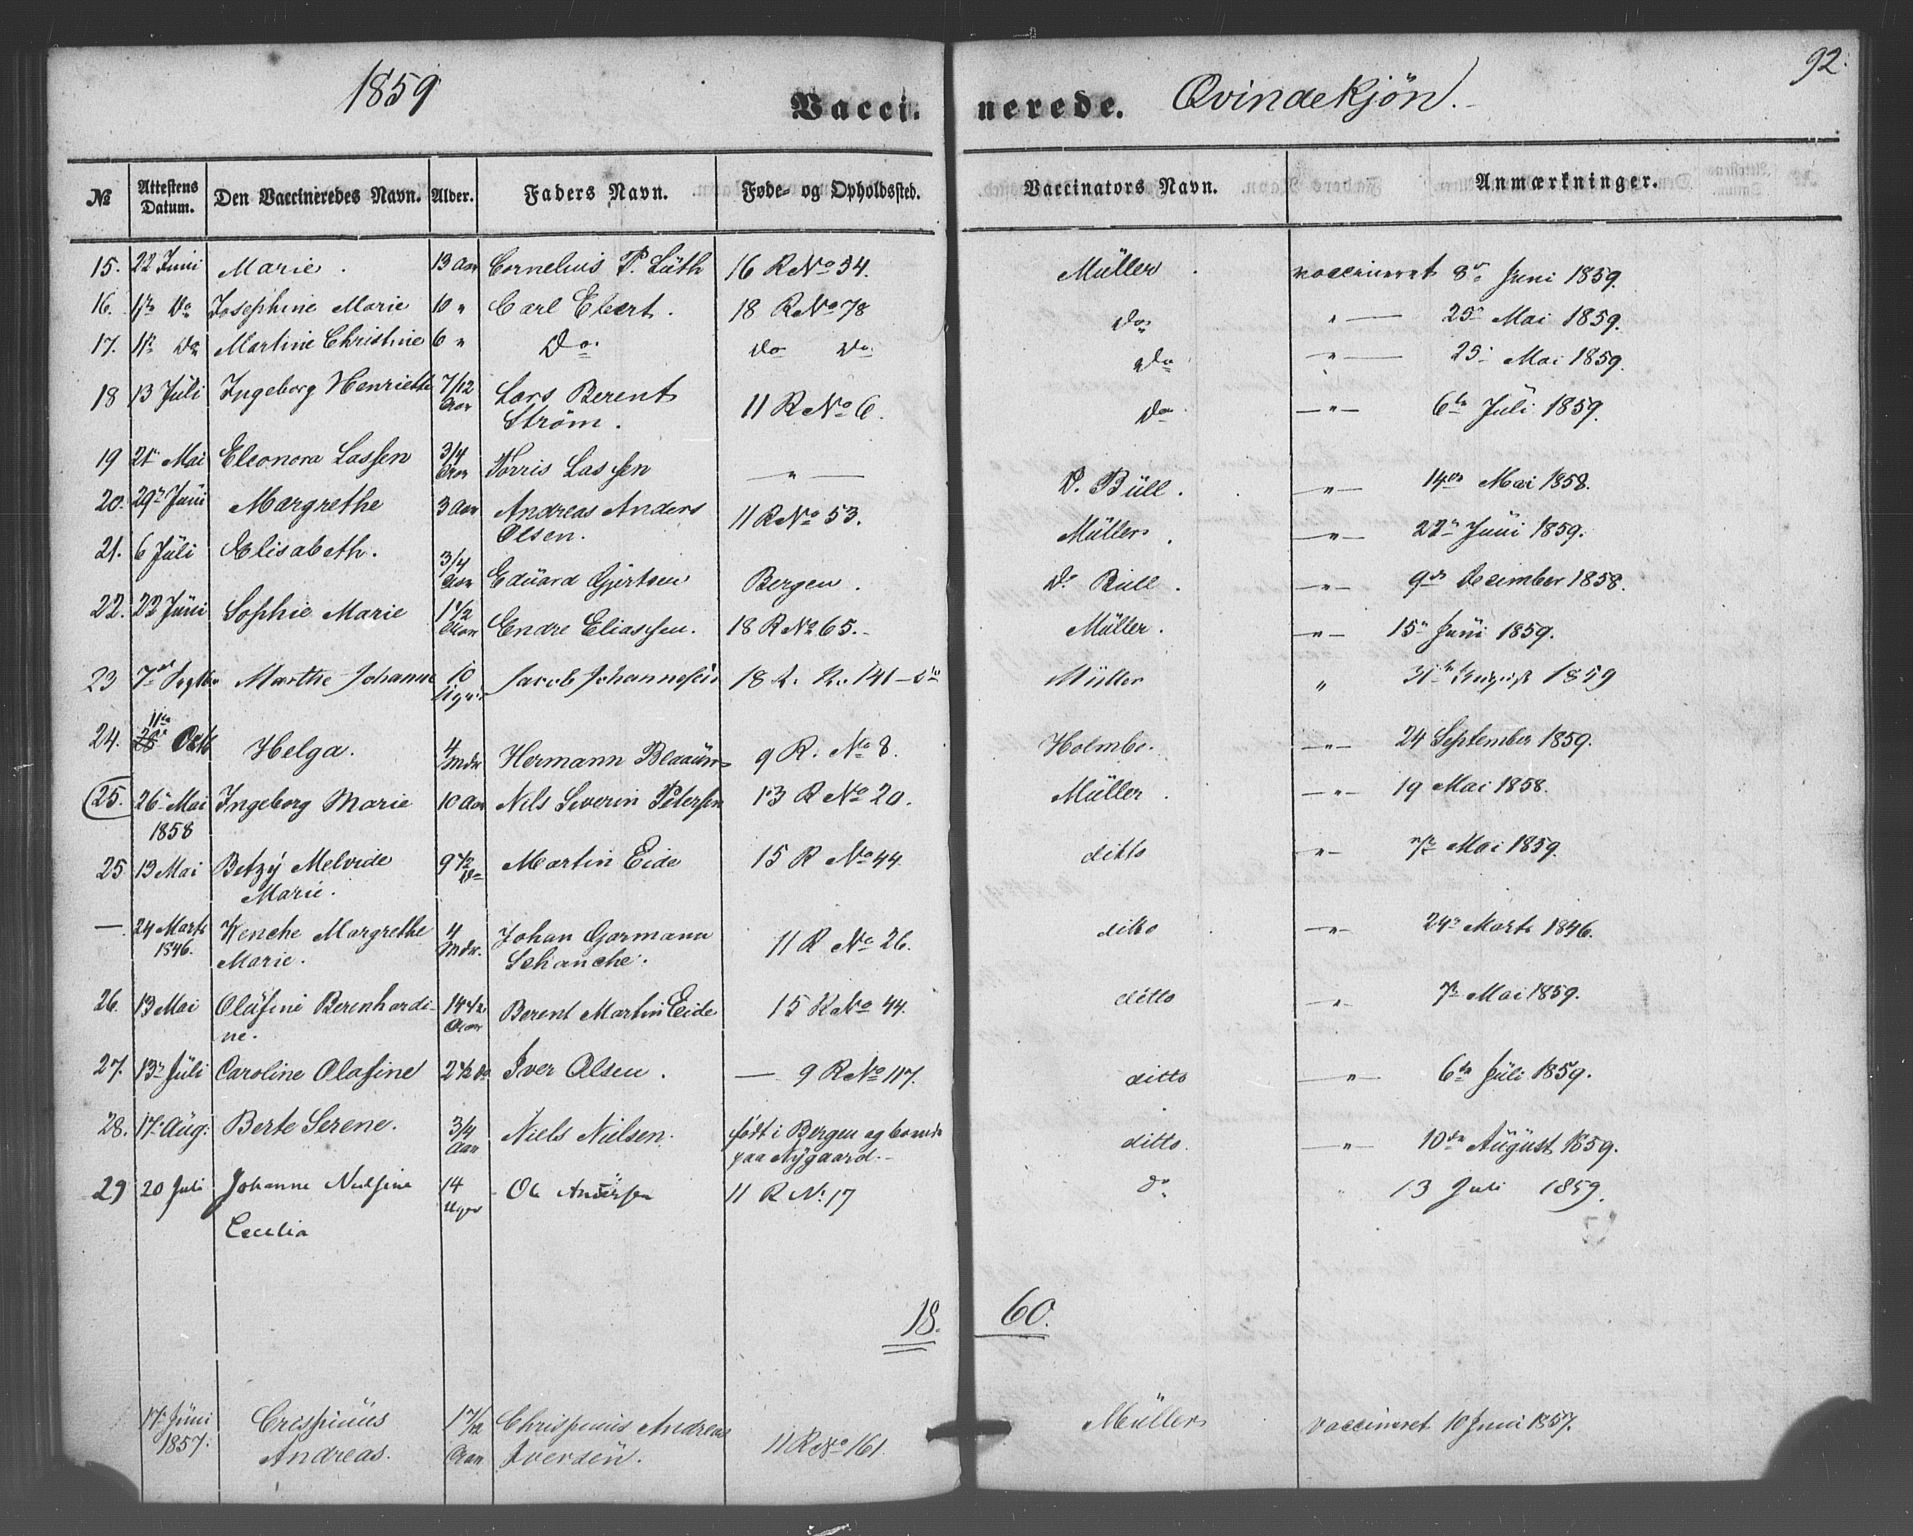 92.
1859 Vacci- nerede. Qvindekjön.
№ Attestens Datum. Den Vaccineredes Navn. Alder. Faders Navn. Føde- og Opholdssted. Vaccinators Navn. Anmærkninger.
15. 22 Juni Marie. 13 Aar Cornelius P. Lüth 16 R No 34. Müller. vaccineret 8de Juni 1859.
16. 1ste Do Josephine Marie 10 " Carl Ebert. 18 R No 78 Do " — 25de Mai 1859.
17. 1ste Do Martine Christine 6 " Do. Do Do. Do " — 25 Mai 1859.
18 13 Jüli Ingeborg Henriette 7/12 Aar Lars Berent 11 R No 6. Do. — " — 6te Jüli 1859.
Ström.
19 21 Mai Eleonora Lassen 3/4 Aar Torris Lassen — " — D. Büll. — " — 14de Mai 1858.
20. 29 Jüni Margrethe 3 Aar Andreas Anders 11 R No 53. Müller. — " — 22 Jüni 1859.
Olsen.
21. 6 Jüli Elisabeth. 3/4 Aar Edüard Gjertsen Bergen. D. Büll. — " — 9de December 1858.
22. 22 Jüni Sophie Marie 1 1/2 Aar Endre Eliassen. 18 R No 65. Müller. — " — 15 Jüni 1859.
23 7de Septbr Marthe Johanne 10 Uger Jacob Johannesen 18 R. No. 141 Müller " 31te August 1859
24. 11te Octb Helga. 4 Mdr Hermann Blaaün 9 R. No 8. Holmbo. — " — 24 September 1859.
25. 26 Mai Ingeborg Marie 10 Aar Nils Severin Petersen 13 R No 20. Müller. — " — 19 Mai 1858.
1858
25 13 Mai Betzÿ Melvide 9 1/2 Do Martin Eide 15 R No 44. ditto — " — 7de Mai 1859.
Marie.
— 24 Marts Wenche Margrethe 4 Mdr. Johan Garmann 11 R No 26. ditto — " — 24 Marts 1846.
1846. Marie. Schanche.
26. 13 Mai Olüfine Berenhardi- 14 1/2 Aar Berent Martin Eide 15 R No 44. ditto — " — 7de Mai 1859.
ne.
27. 13 Jüli Caroline Olafine 2 1/2 do Iver Olsen. — 9 R No 117. ditto — " — 6te Jüli 1859.
28. 17 Aüg: Berte Serene. 3/4 Aar Niels Nielsen. født i Bergen og boende ditto. — " — 10de Aügüst 1859.
paa Nÿgaard.
29 20 Juli Johanne Nilsine 14 Uger Ole Andersen 11 R No 17 do " 13 Juli 1859.
Cecilia
18. 60.
17 Jüni Crispinüs 1 7/12 Chrispinüs Andreas 11 R No 161. Müller vaccineret 10 Juni 1857.
1857. Andreas. Aar Iversen.